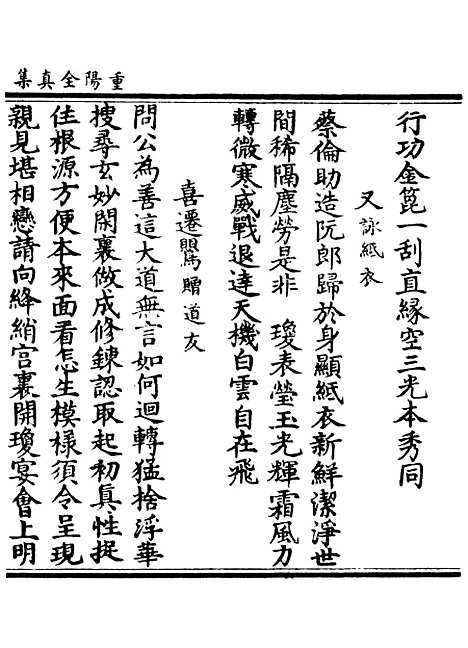 重陽全真集
行功金篦一刮直緣空三光本秀同
又詠紙衣
蔡倫助造阮郎歸於身顯紙衣新鮮潔淨世
間稀隔塵勞是非　瓊表瑩玉光輝霜風力
轉微寒威戰退達天機白雲自在飛
喜遷鶯贈道友
問公為善這大道無言如何迴轉猛捨浮華
搜尋玄妙閑裏做成修鍊認取起初真性捉
住根源方便本來面看怎生模樣須令呈現
親見堪相戀請向絳綃宮裏開瓊宴會上明